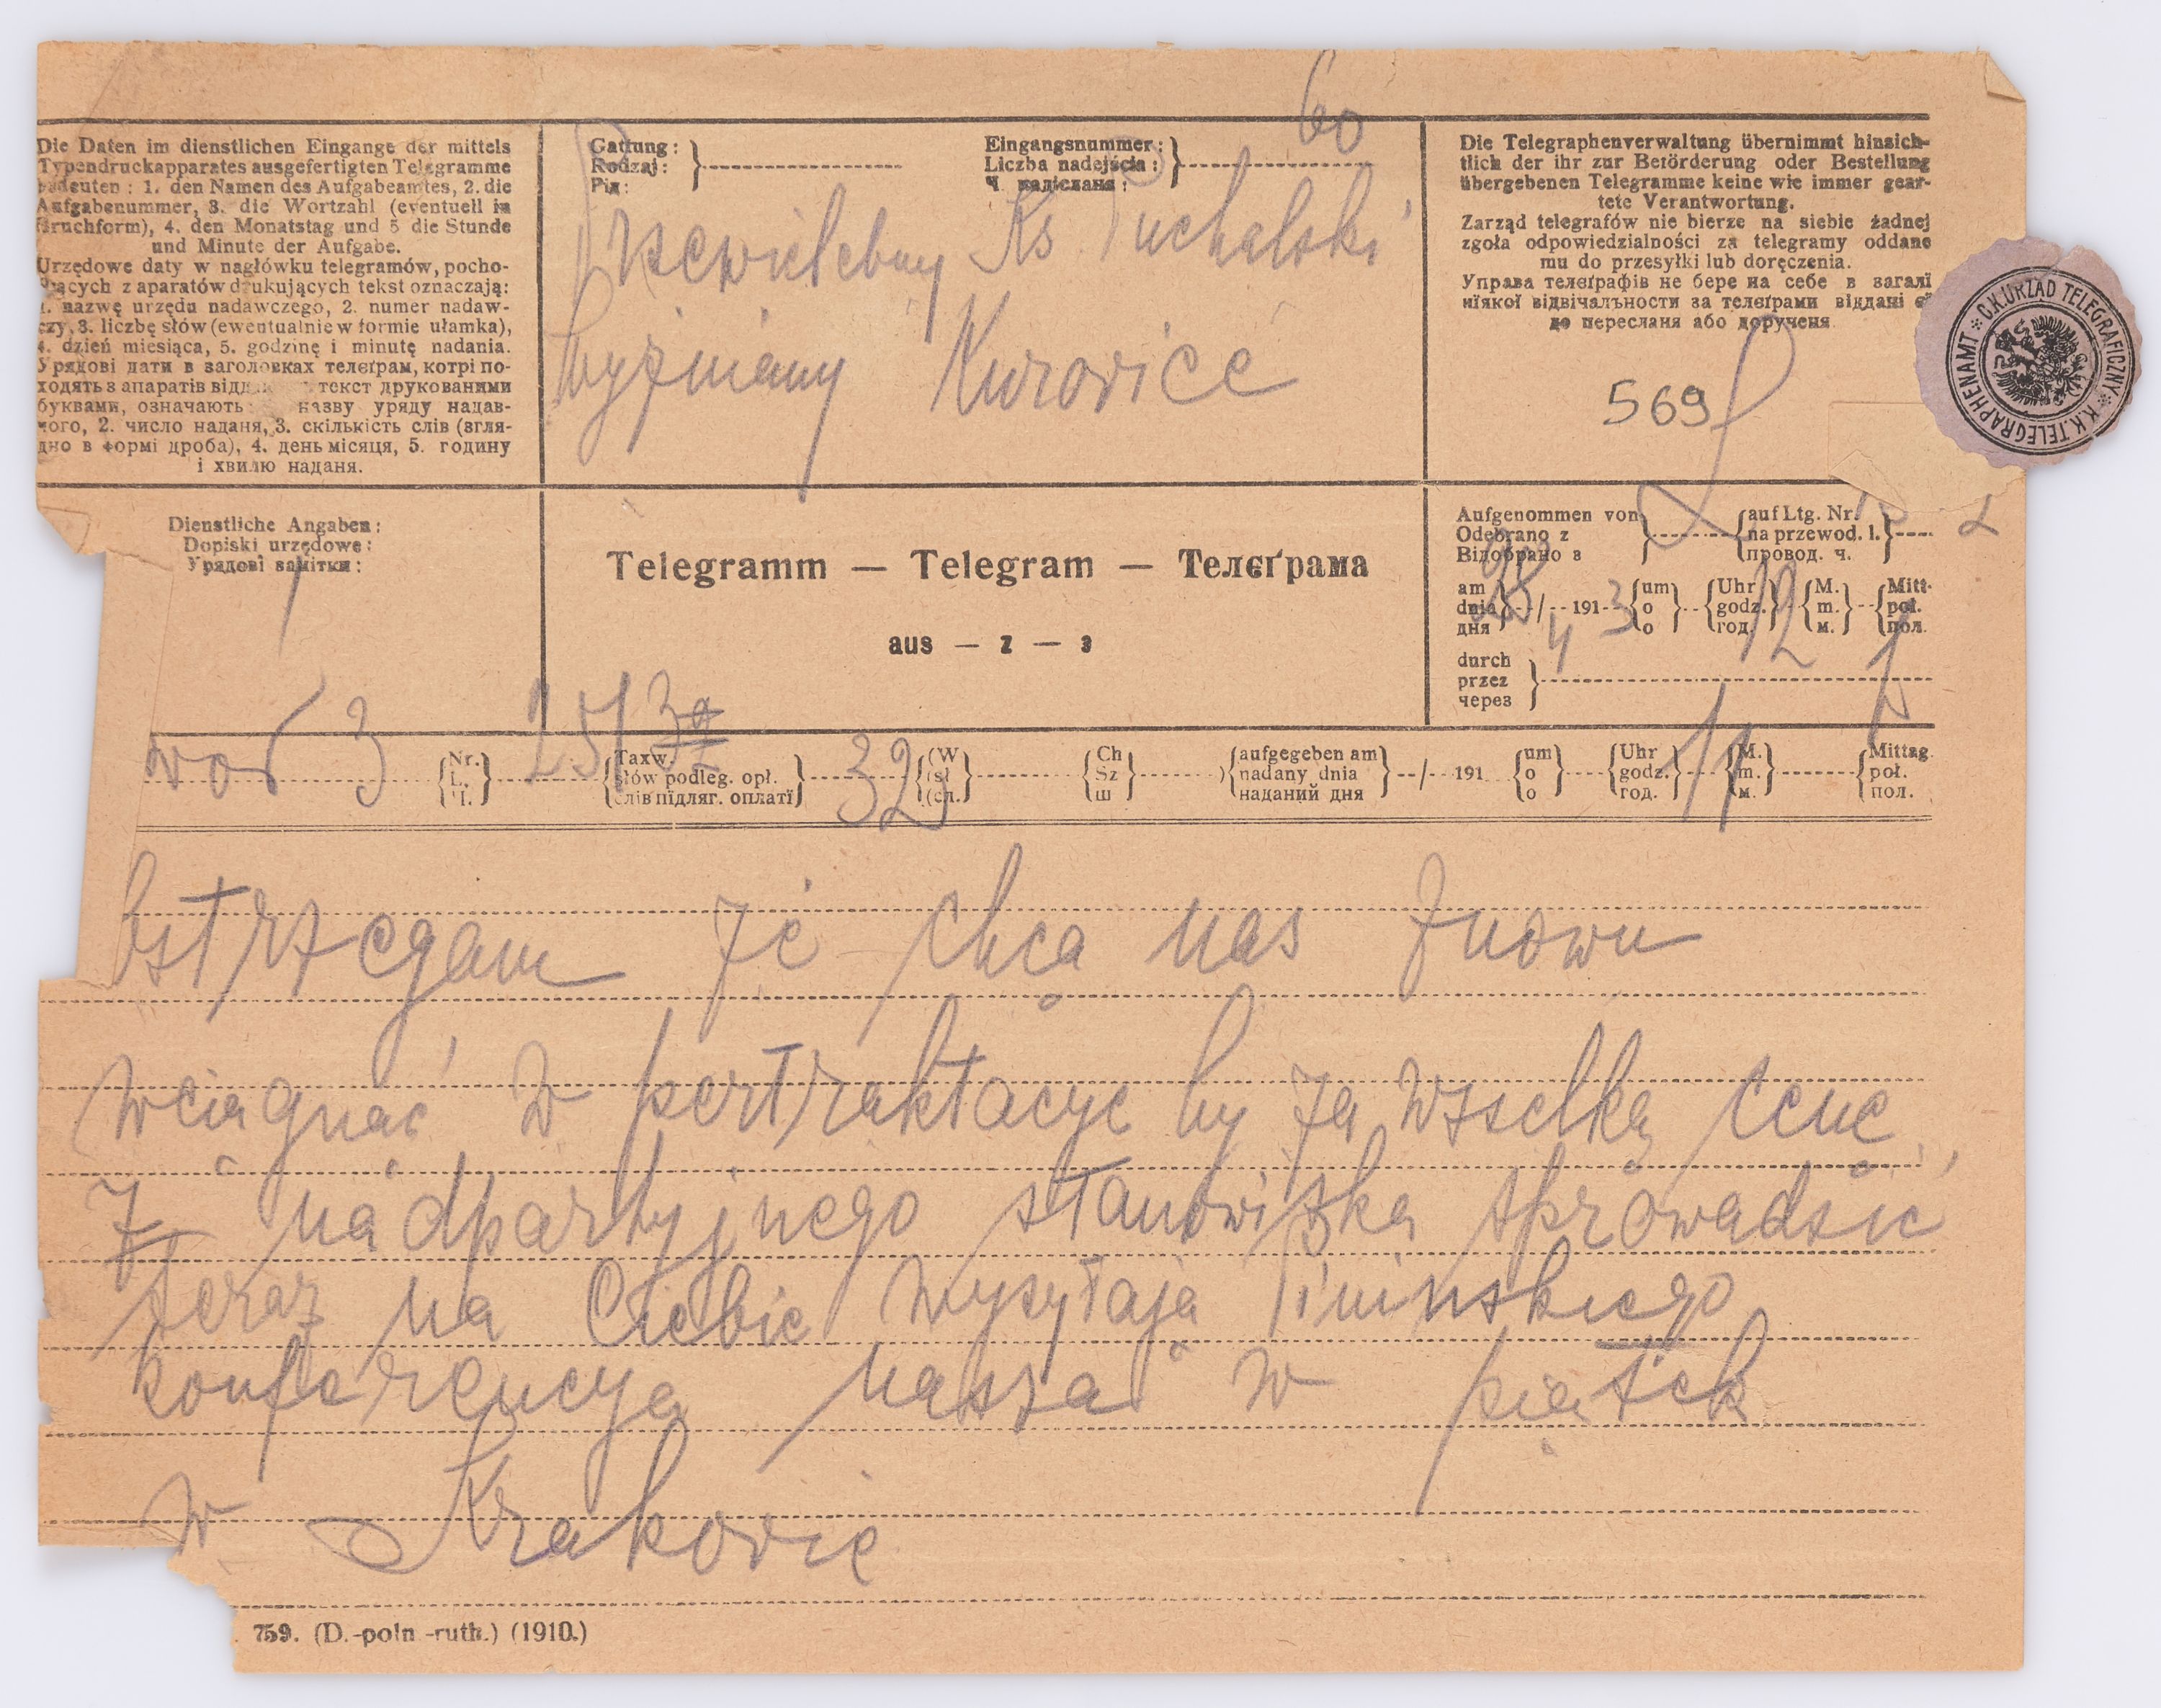 60
Die Daten im dienstlichen Eingange der mittels
Typendruckapparates ausgefertigten Telegramme
bedeuten : 1. den Namen des Aufgabeamtes, 2. die
Aufgabenummer, 3. die Wortzahl (eventuell in
Bruchform), 4. den Monatstag und 5 die Stunde
und Minute der Aufgabe.
Urzędowe daty w nagłówku telegramów, pocho-
dzących z aparatów drukujących tekst oznaczają:
1. nazwę urzędu nadawczego, 2. numer nadaw-
czy, 3. liczbę słów (ewentualnie w formie ułamka),
4. dzień miesiąca, 5. godzinę i minutę nadania.
Урядові дати в заголовках телєґрам, котрі по-
ходять з апаратів текст друкованими
буквами, означають: назву уряду надав-
чого, 2. число наданя, 3. скількість слів (згля-
дно в формі дроба), 4. день місяця, 5. годину
і хвилю наданя.
Gattung :
Rodzaj :
Рід :
Eingangsnummer :
Liczba nadejścia :
Ч. надісланя :
Przewielebny Ks Puchalski
Wyżniany Kurovice
Die Telegraphenverwaltung übernimmt hinsich-
tlich der ihr zur Beförderung oder Bestellung
übergebenen Telegramme keine wie immer gear-
tete Verantwortung.
Zarząd telegrafów nie bierze na siebie żadnej
zgoła odpowiedzialności za telegramy oddane
mu do przesyłki lub doręczenia.
Управа телєґрафів не бере на себе в загалї
нїякої відвічальности за телєґрами віддані єї
до пересланя або дорученя
569
C.K.URZĄD TELEGRAFICZNY * K.K.TELEGRAPHENAMT *
Dienstliche Angaben :
Dopiski urzędowe :
Урядові замітки :
Telegramm — Telegram — Телєґрама
aus — z — з
Aufgenommen von
Odebrano z
Відобрано з
auf Ltg. Nr.
na przewod. l.
провод. ч.
2
am
dnia
дня
/ 4 191 3
um
o
о
Uhr
godz.
год.
12
M.
m.
м.
Mitt-
poł.
пол.
durch
przez
через
3 251
Nr.
L.
Ч.
Taxw.
słów podleg. opł.
слів підляг. оплатї
32
(W
(sł
(сл.
Ch
Sz
ш
aufgegeben am
nadany dnia
наданий дня
/ 191
um
o
о
Uhr
godz.
год.
11
M.
m.
м.
Mittag
poł.
пол.
ostrzegam że chcą nas znowu
wciągnąć w pertraktacye by za wszelką cenę
z nadpartyjnego stanowiska sprowadzić
teraz na Ciebie wysyłają Pinińskiego
konferencya nasza w piątek
w Krakovie
759. (D.-poln.-ruth.) (1910.)